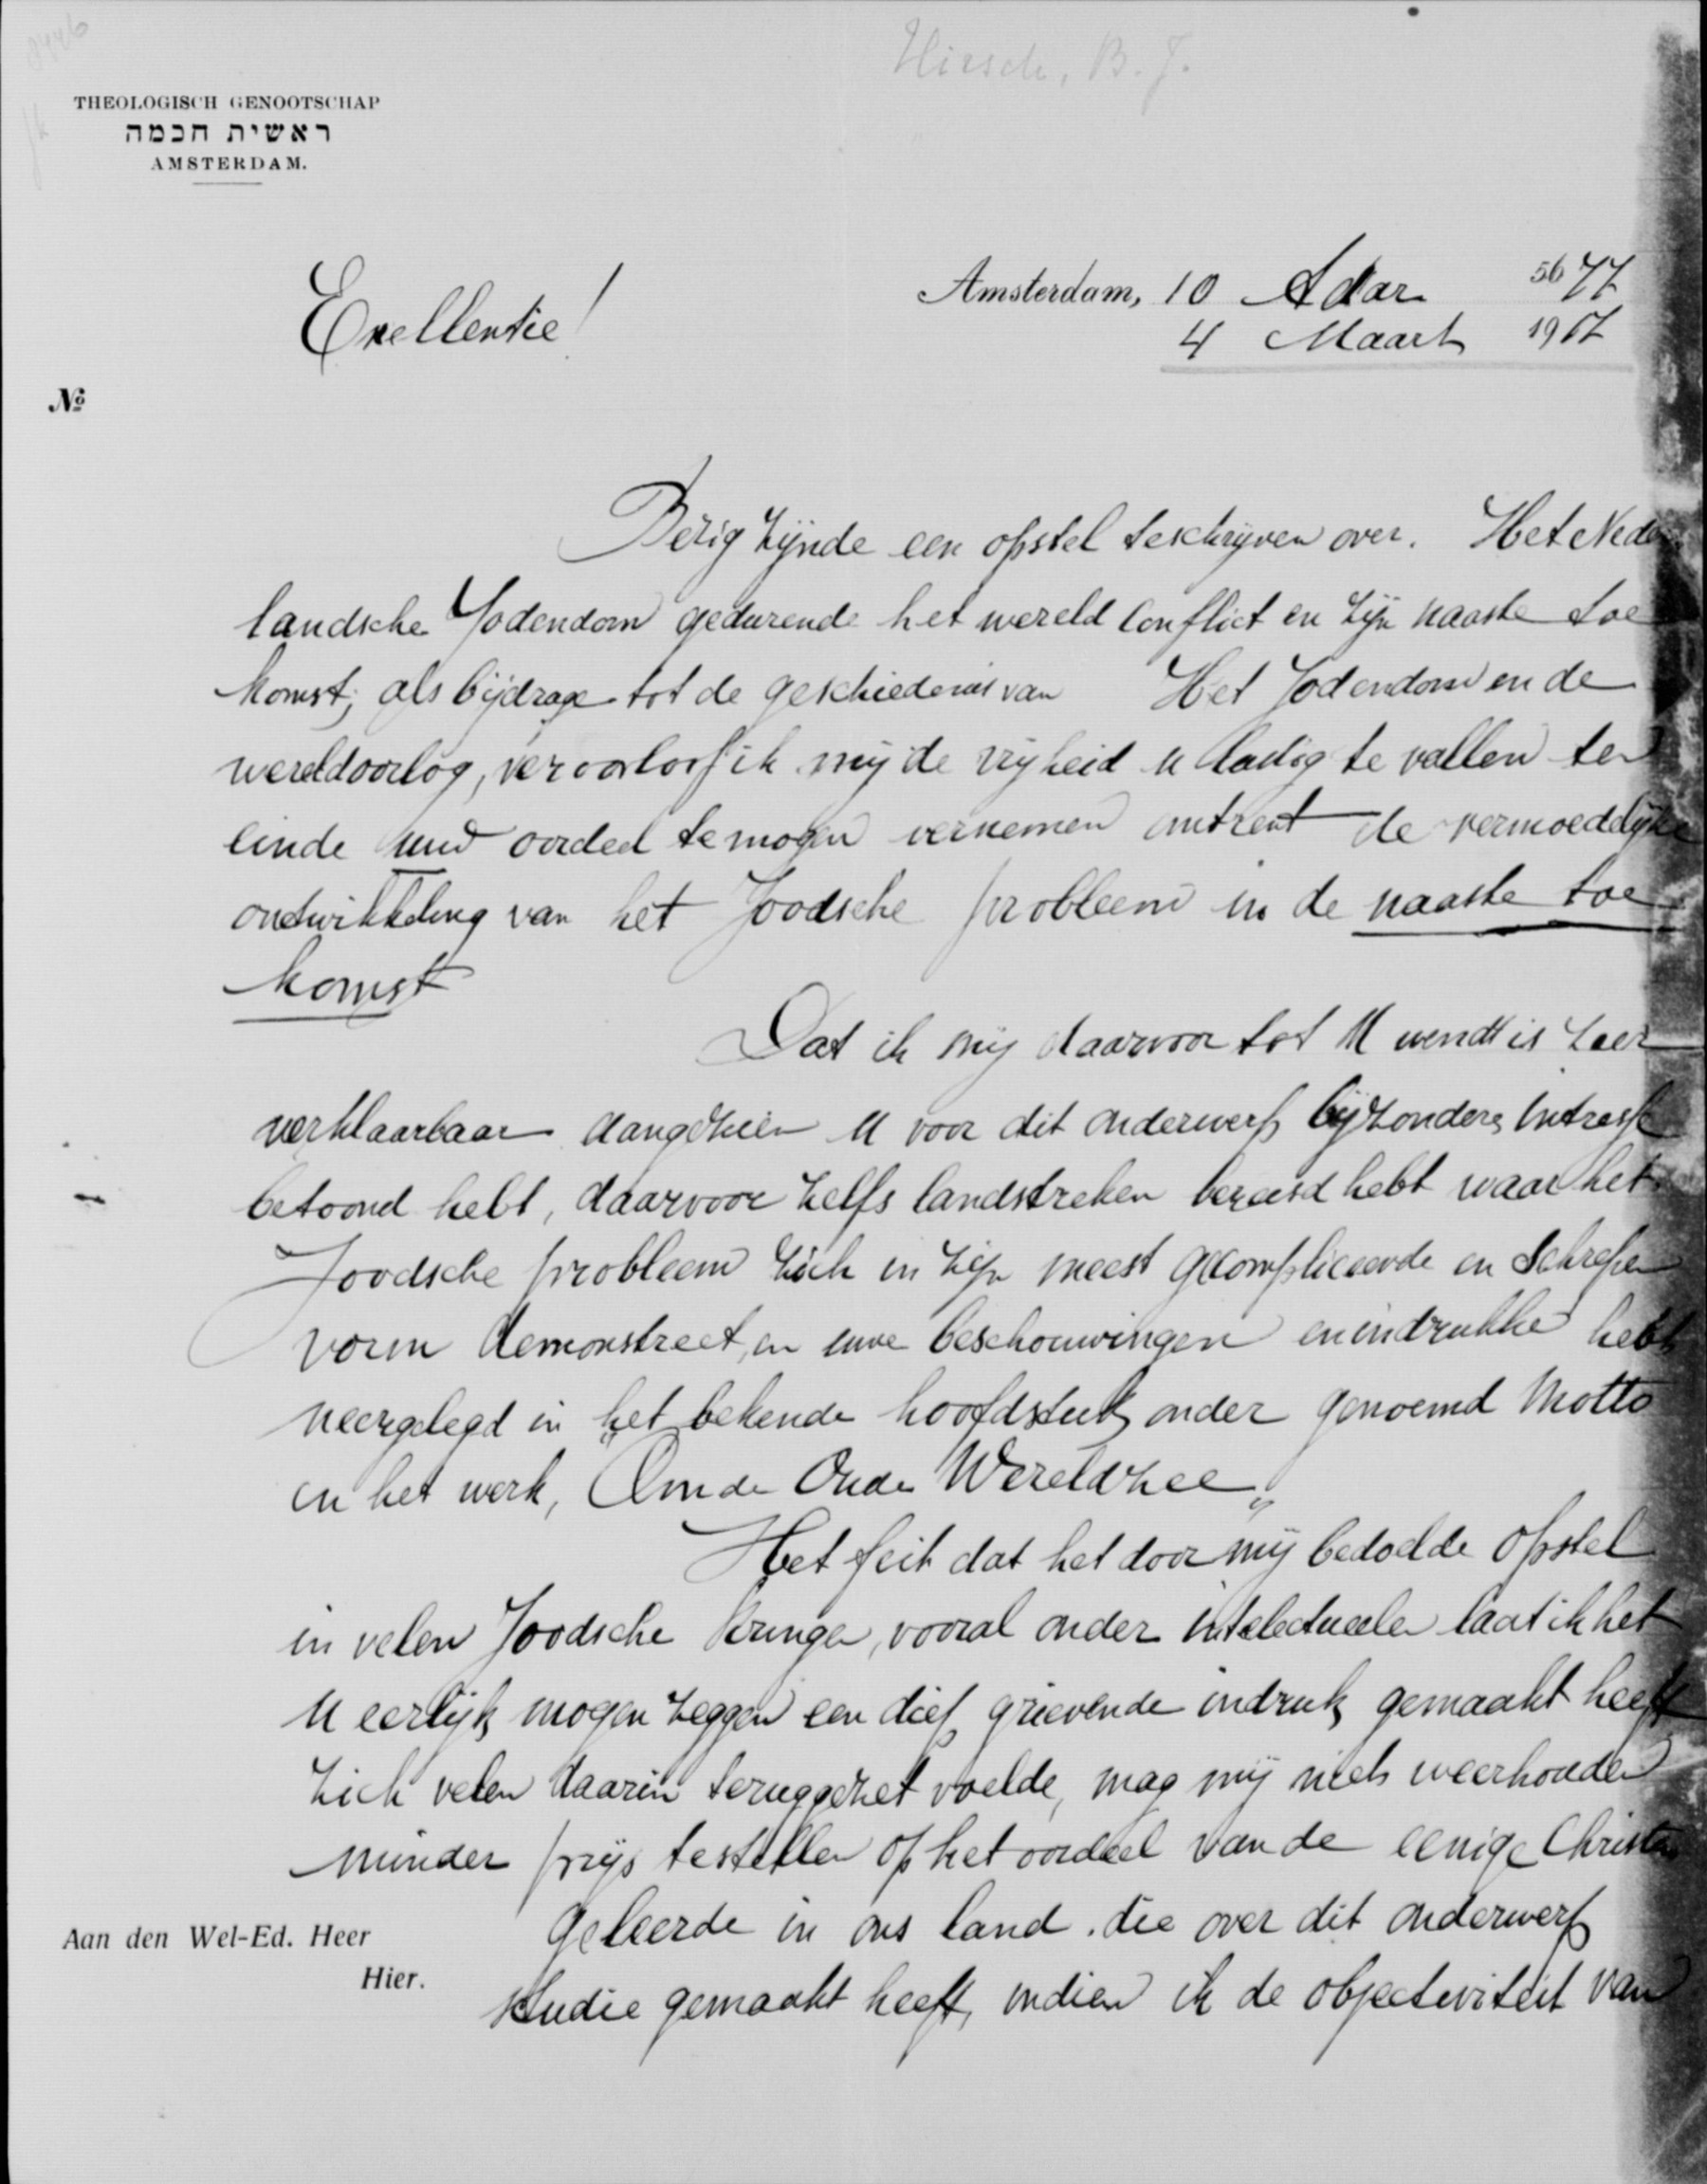 Hirsch, B. J.
THEOLOGISCH GENOOTSCHAP
ראשית חכמה
AMSTERDAM.
Amsterdam, 10 Adar 5677
4 Maart 1917
Exellentie!
№
Bezig zijnde een opstel te schrijven over. Het Neder
landsche Jodendom gedurende het wereld conflict en zijn naaste toe
komst, als bijdrage tot de geschiedenis van Het Jodendom en de
wereldoorlog, veroorloof ik mij de vrijheid u lastig te vallen ten
einde uw oordeel te mogen vernemen omtrent de vermoedelijke
ontwikkeling van het Joodsche probleem in de naaste toe
komst
Dat ik mij daarvoor tot U wendt is zeer
verklaarbaar aangezien U voor dit onderwerp bijzondere intresse
betoond hebt, daarvoor zelfs landstreken bereisd hebt waar het
Joodsche probleem zich in zijn meest gecompliceerde en scherpen
vorm demonstreet, en uwe beschouwingen en indrukke hebt
neergelegd in het bekende hoofdstuk onder genoemd motto
in het werk, „Om de Oude Wereldzee„
Het feit dat het door mij bedoelde opstel
in velen Joodsche kringen, vooral onder intelectueelen laat ik het
U eerlijk mogen zeggen een diep grievende indruk gemaakt heeft
zich velen daarin teruggezet voelde, mag mij niets weerhouden
minder prijs te stellen op het oordeel van de eenige Christen
geleerde in ons land. die over dit onderwerp
studie gemaakt heeft, indien ik de objectiviteit van
Aan den Wel-Ed. Heer
Hier.